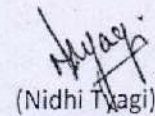 (Nidhi Tyagi)